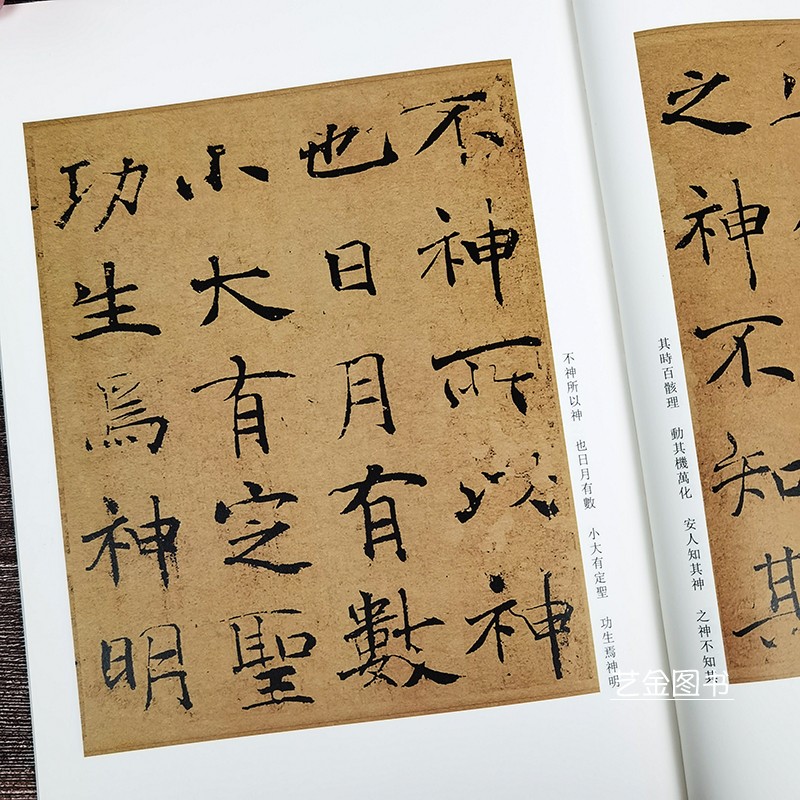 之神不知其
其時百骸理 動其機萬化 安人知其神 之神不知其
不神所以神
也日月有數
小大有定聖
功生焉神明
不神所以神 也日月有數 小大有定聖 功生焉神明
艺金图书